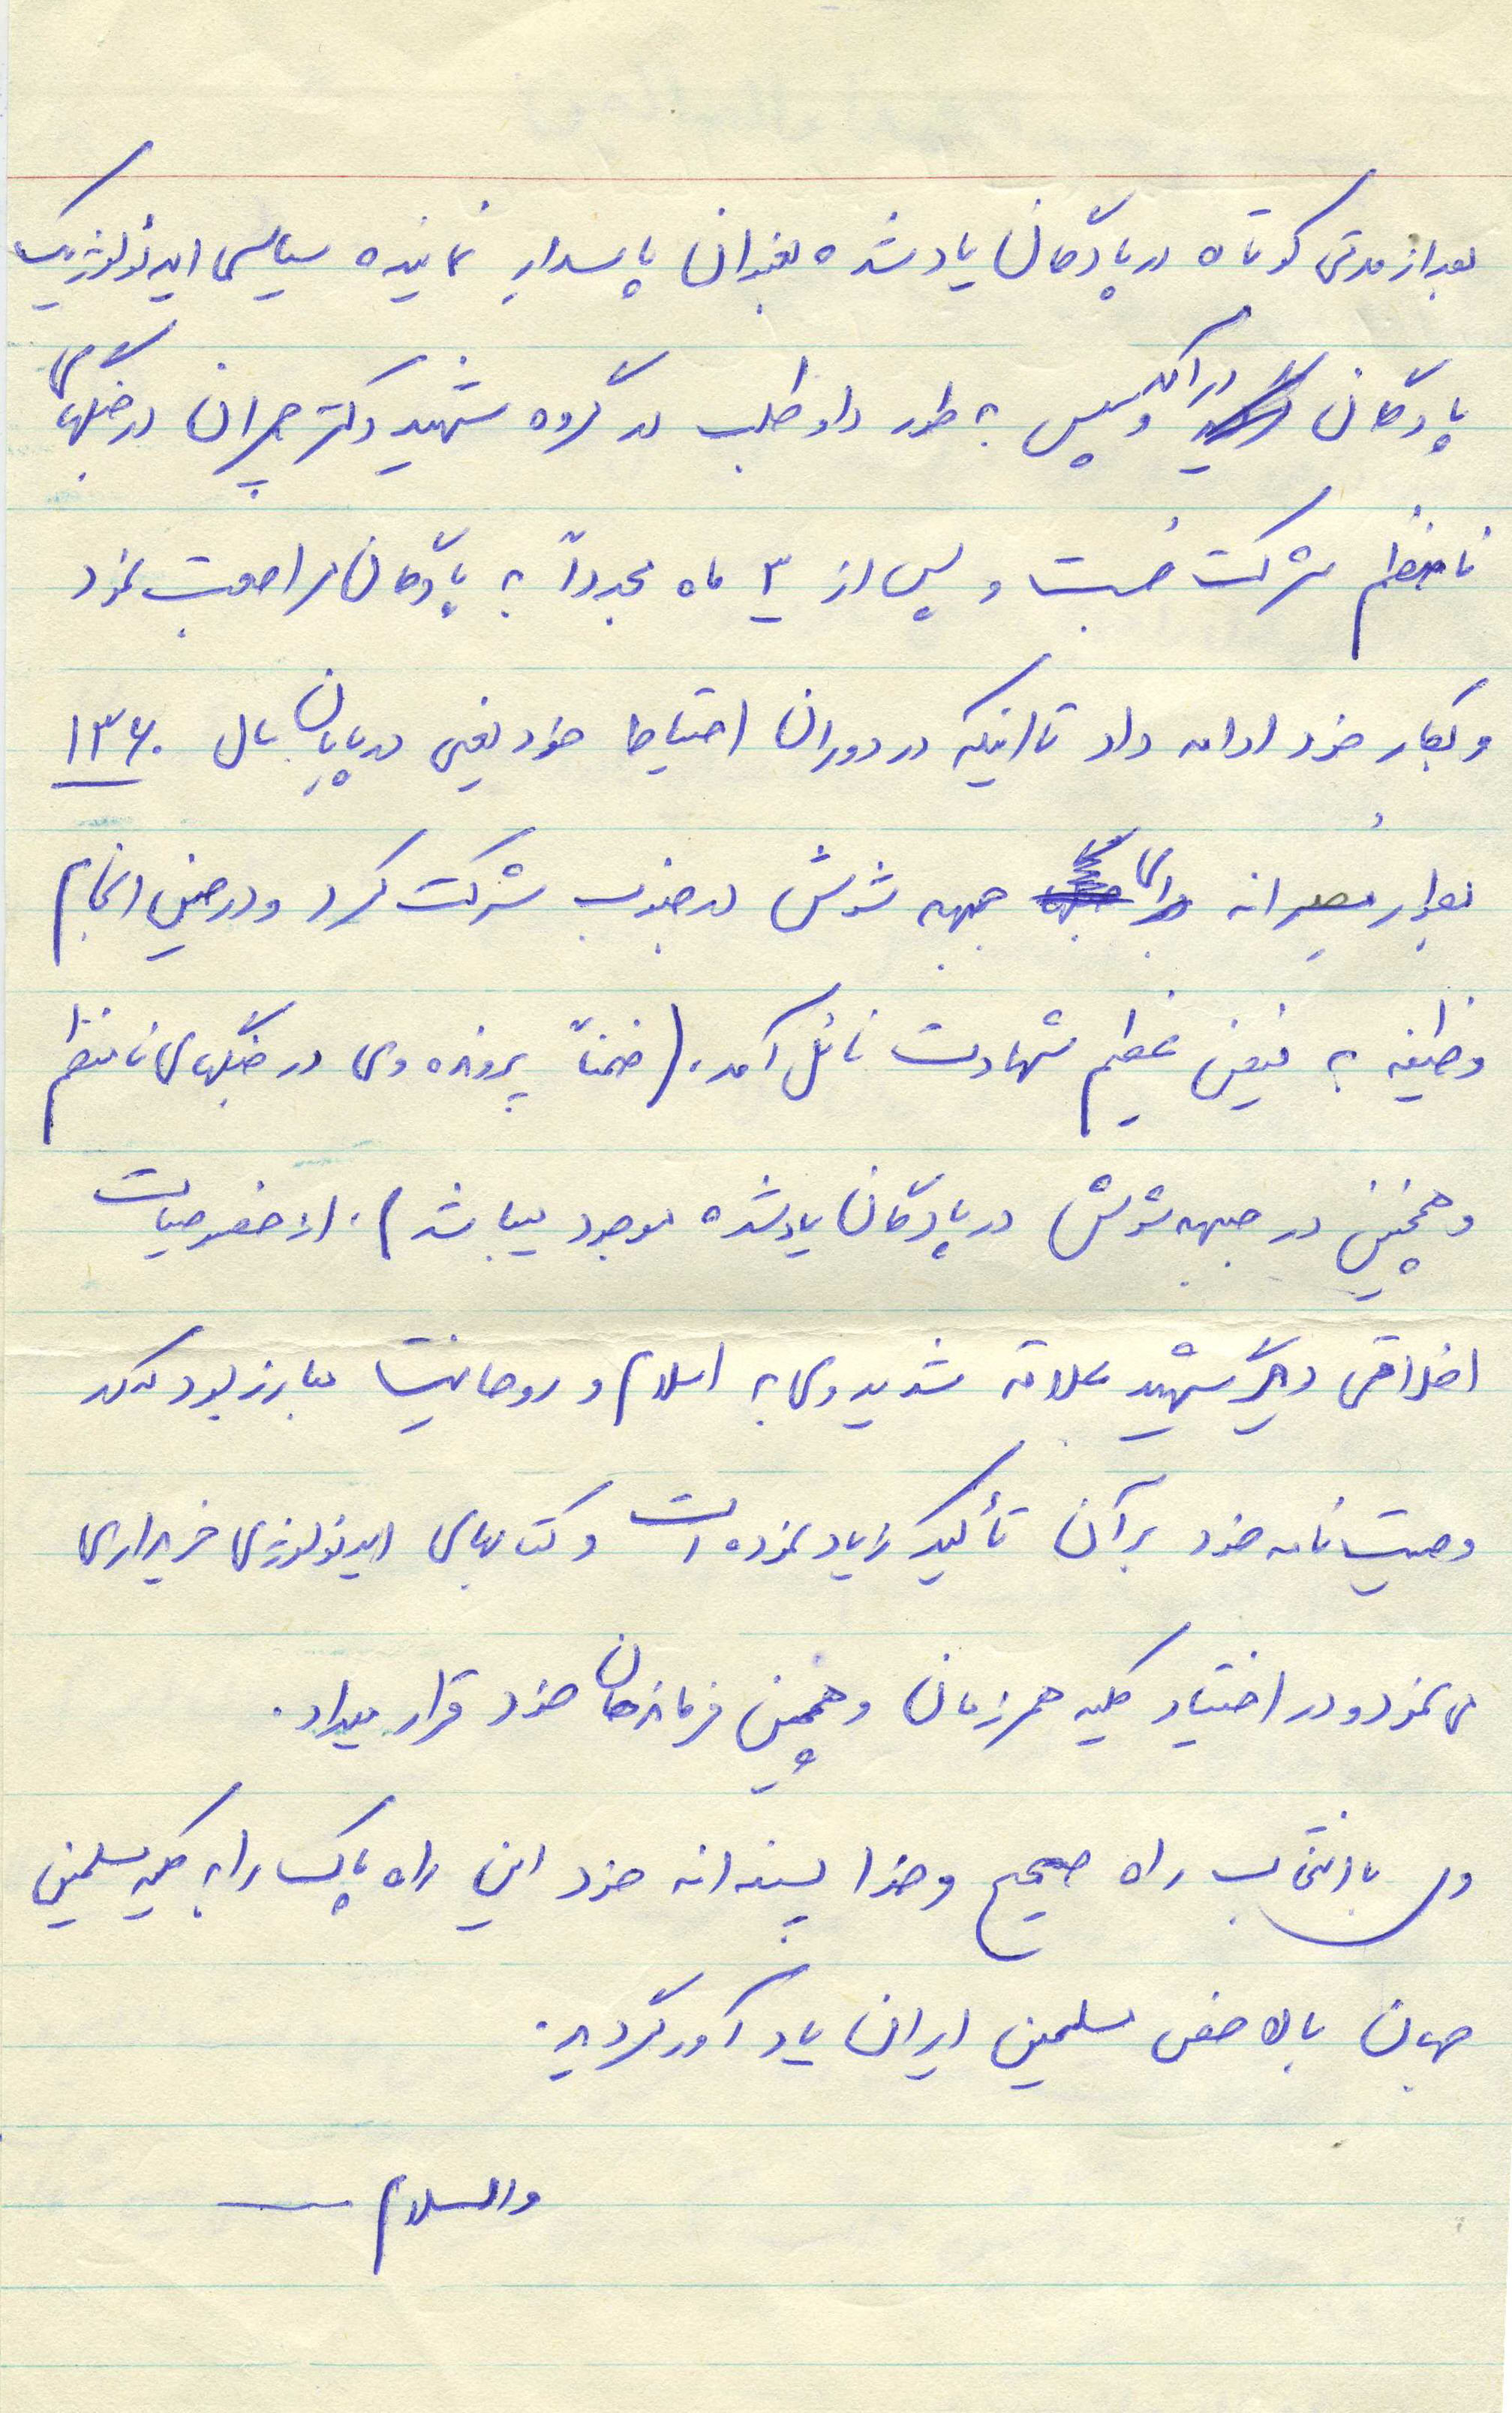 بعد از مدتی کوتاه در پادگان یاد شده بعنوان پاسدار نماینده سیاسی ایدئولوژیک
پادگان درآمد و سپس به طور داوطلب در گروه شهید دکتر چمران در جنگهای
نامنظم شرکت جست و پس از ۳ ماه مجدداً به پادگان مراجعت نمود
و بکار خود ادامه داد تا اینکه در دوران احتیاط خود یعنی در پایان سال ۱۳۶۰
بطور مُصِرانه برای جبهه شوش در جنوب شرکت کرد و در حین انجام
وظیفه به فیض عظیم شهادت نائل آمد. (ضمناً پرونده وی در جنگهای نامنظم
و همچنین در جبهه شوش در پادگان یاد شده موجود میباشد). از خصوصیات
اخلاقی دیگر شهید علاقه شدید وی به اسلام و روحانیت مبارز بود که در
وصیت نامه خود بر آن تأکید زیاد نموده است و کتابهای ایدئولوژی خریداری
می نمود و در اختیار کلیه همرزمان و همچنین فرماندهان خود قرار میداد.
وی با انتخاب راه صحیح و خدا پسندانه خود این راه پاک را به کلیه مسلمین
جهان بالاخص مسلمین ایران یادآور گردید.
والسلام